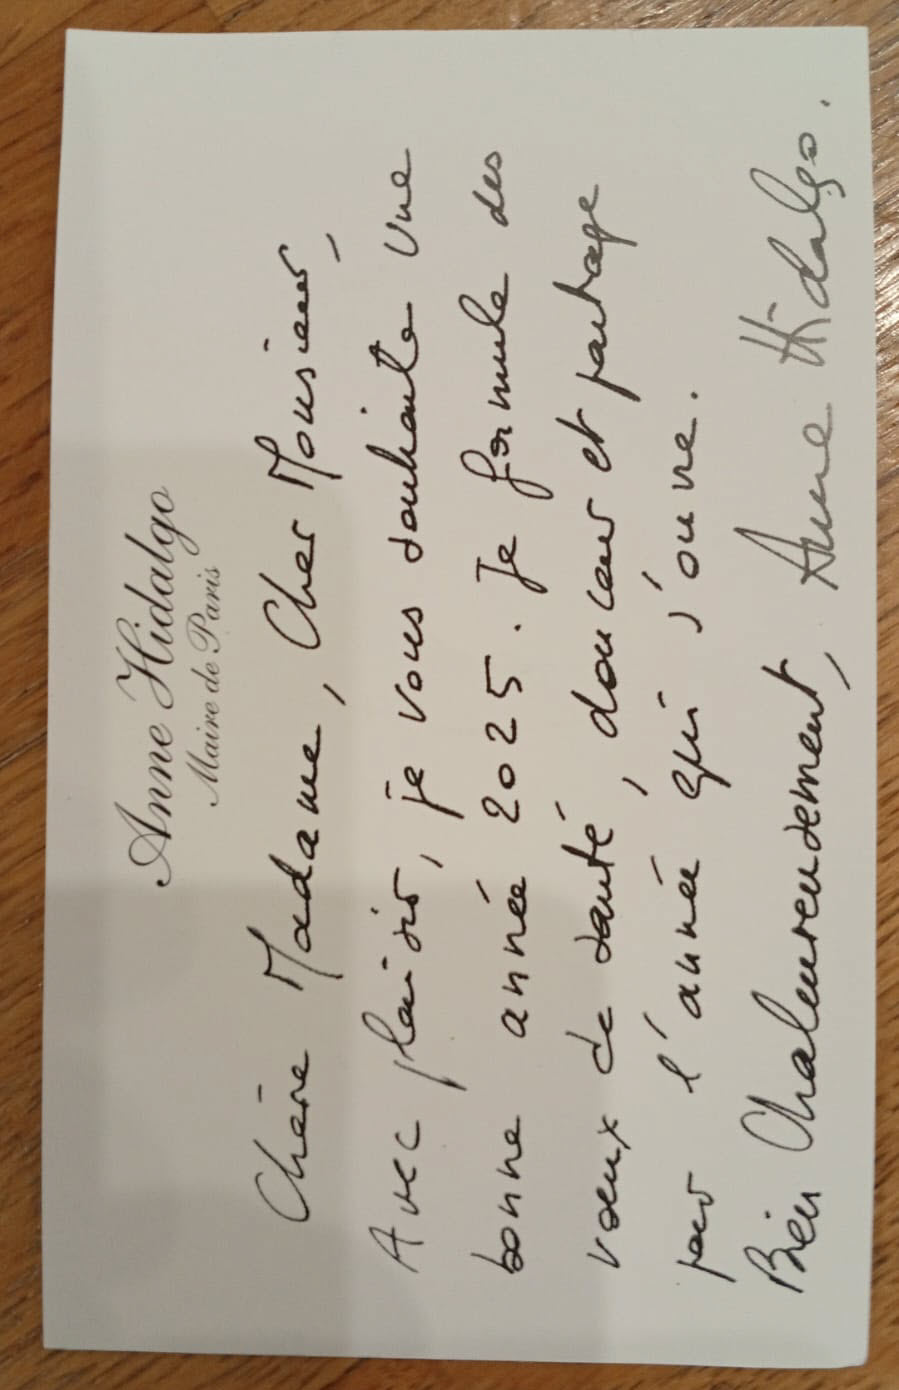 Anne Hidalgo
Maire de Paris
Chère Madame, Cher Monsieur,
Avec plaisir, je vous souhaite une
bonne année 2025. Je formule des
voeux de santé, douceur et partage
pour l'année qui s'ouvre.
Bien Chaleureusement, Anne Hidalgo.